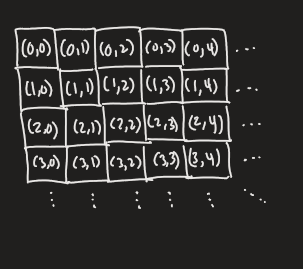 (0,0) (0,1) (0,2) (0,3) (0,4) ...
(1,0) (1,1) (1,2) (1,3) (1,4) ...
(2,0) (2,1) (2,2) (2,3) (2,4) ...
(3,0) (3,1) (3,2) (3,3) (3,4) ...
⋮ ⋮ ⋮ ⋮ ⋮ ⋱